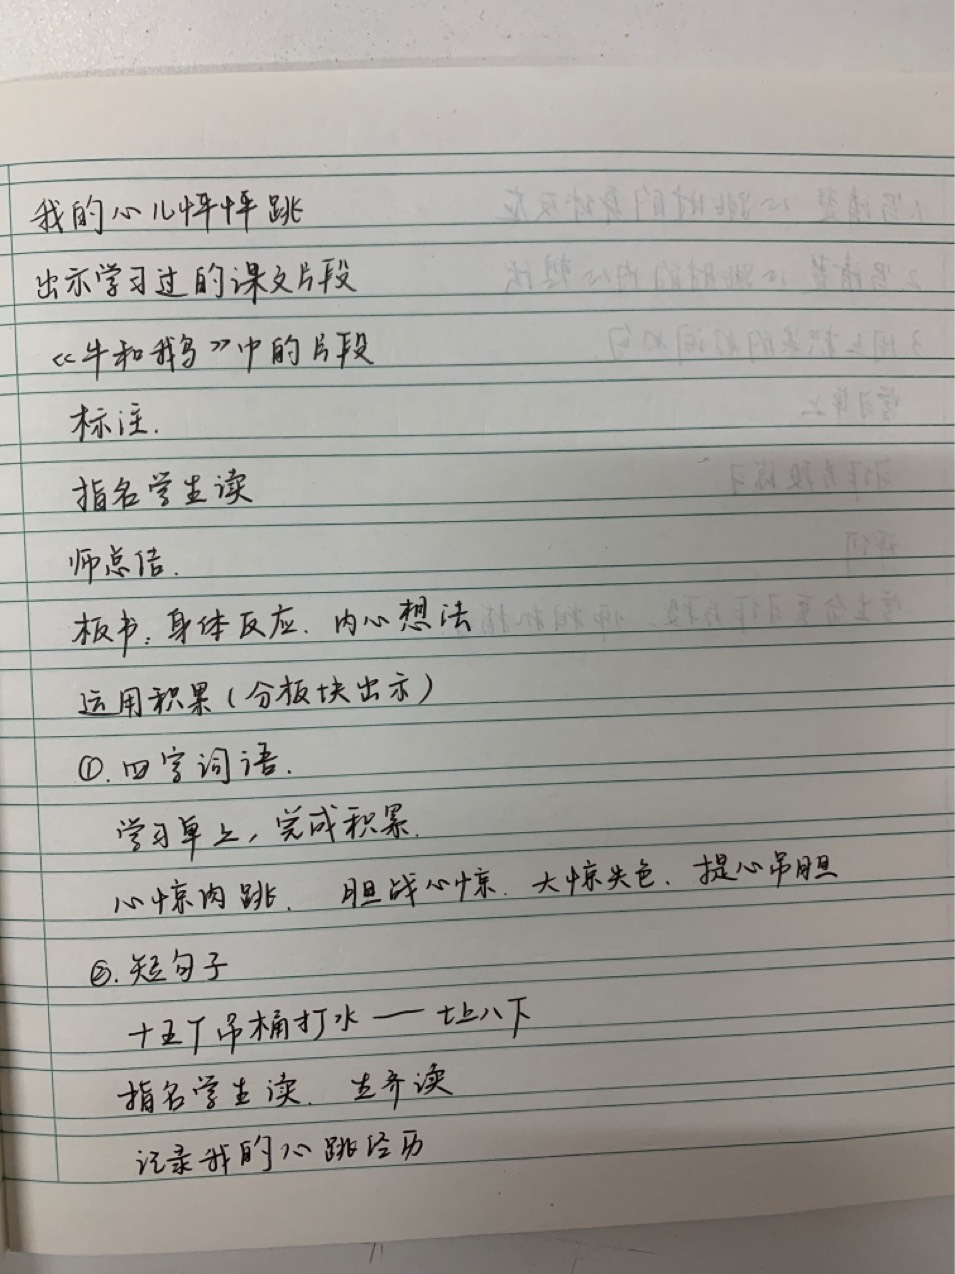 我的心儿怦怦跳
出示学习过的课文片段
《牛和鹅》中的片段
标注.
指名学生读
师总结.
板书:身体反应.内心想法
运用积累(分板块出示)
①.四字词语.
学习单上,完成积累.
心惊肉跳、胆战心惊.大惊失色、提心吊胆
②.短句子
十五个吊桶打水——七上八下
指名学生读.生齐读
记录我的心跳经历